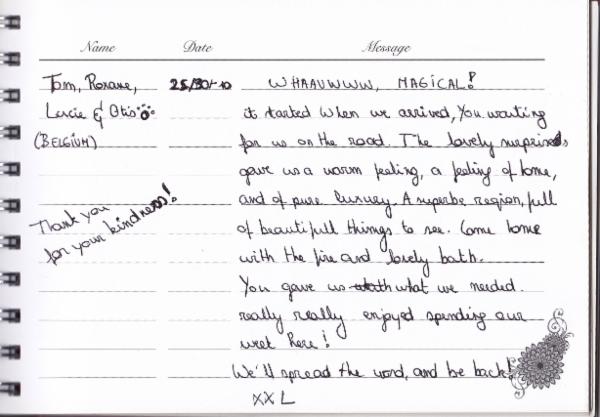 Name Date Message
Tom, Roxane, 25/30-10 WHAAUWWW, MAGICAL!
Lucie & Otis
(BELGIUM)
it started when we arrived, You waiting
for us on the road. The lovely surprises
gave us a warm feeling, a feeling of home,
and of pure luxury. A superbe region, full
of beautifull things to see. Come home
with the fire and lovely bath.
You gave us what we needed.
really really enjoyed spending our
week here!
We'll spread the word, and be back!
XXL
Thank you
for your kindness!